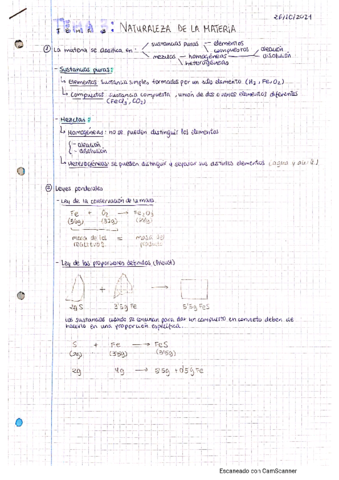 26/10/2021
: NATURALEZA DE LA MATERIA
① La materia se clasifica en:
sustancias puras
elementos
compuestos
mezclas
homogéneas
aleación
disolución
heterogéneas
- Sustancias puras:
Elementos: sustancia simple, formadas por un sólo elemento (H2, Fe, O2)
Compuestos: sustancia compuesta, unión de dos o varios elementos diferentes
(FeCl3, CO2)
- Mezclas:
Homogéneas: no se pueden distinguir los elementos
- aleación
- disolución
Heterogéneas: se pueden distinguir y separar sus distintos elementos (agua y
② Leyes ponderales
- Ley de la conservación de la masa
Fe + O2 → Fe2O3
masa de los = masa del
reactivos producto
- Ley de las proporciones definidas (Proust)
+ →
2g S 3'5g Fe 5'5g FeS
Las sustancias cuando se combinan para dar un compuesto en concreto deben de
hacerlo en una proporción específica.
S + Fe → FeS
(2g) (3'5g) (5'5g)
2g 4g → 5'5g + 0'5g Fe
Escaneado con CamScanner